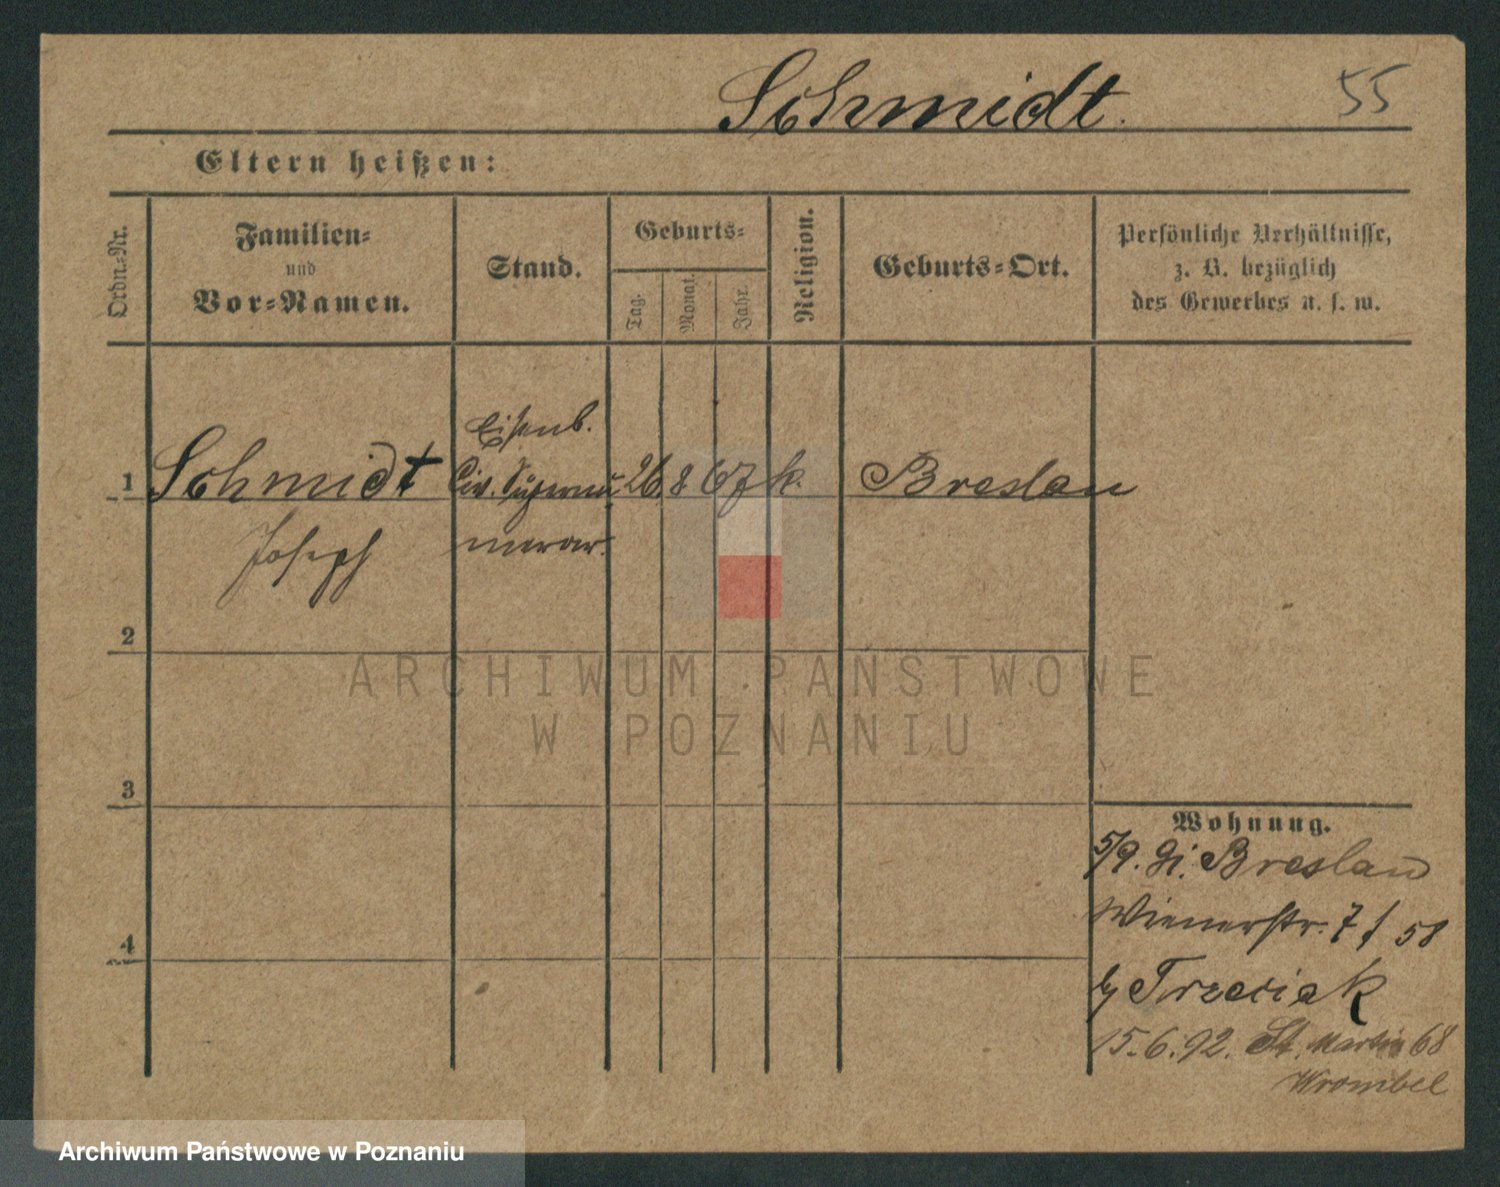 Schmidt. 55
Eltern heißen:
Ordn.-Nr.
Familien-
und
Vor-Namen.
Stand.
Geburts-
Tag.
Monat.
Jahr.
Religion.
Geburts-Ort.
Persönliche Verhältnisse,
z. B. bezüglich
des Gewerbes u. s. w.
Eisenb.
1 Schmidt Civ. Supernu 26 8 67 k. Breslau
Joseph merar.
2
3
4
Wohnung.
5/9. Breslau
Wienerstr. 7 / 58
Trzeciak
15.6.92. St. Martin 68
Wrombel
ARCHIWUM PAŃSTWOWE
W POZNANIU
Archiwum Państwowe w Poznaniu